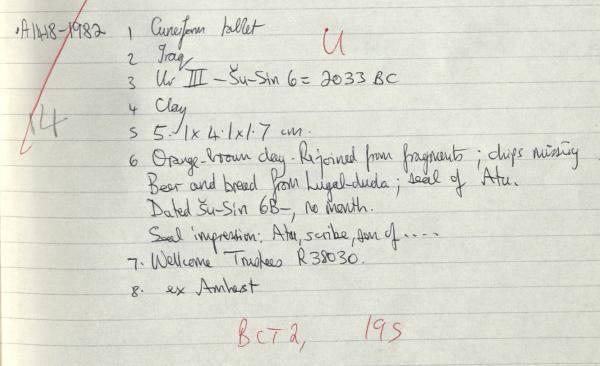 'A1418-1982 1 Cuneiform tablet
U
2 Iraq
3 Ur III - Šu-Sin 6 = 2033 BC
14
4 Clay
5 5.1 x 4.1 x 1.7 cm.
6 Orange-brown clay. Rejoined from fragments; chips missing.
Beer and bread from Lugal-duda; seal of Atu.
Dated Šu-Sin 6B-, no month.
Seal impression: Atu, scribe, son of ....
7. Wellcome Trustees R38030.
8. ex Amherst
BCT2, 195